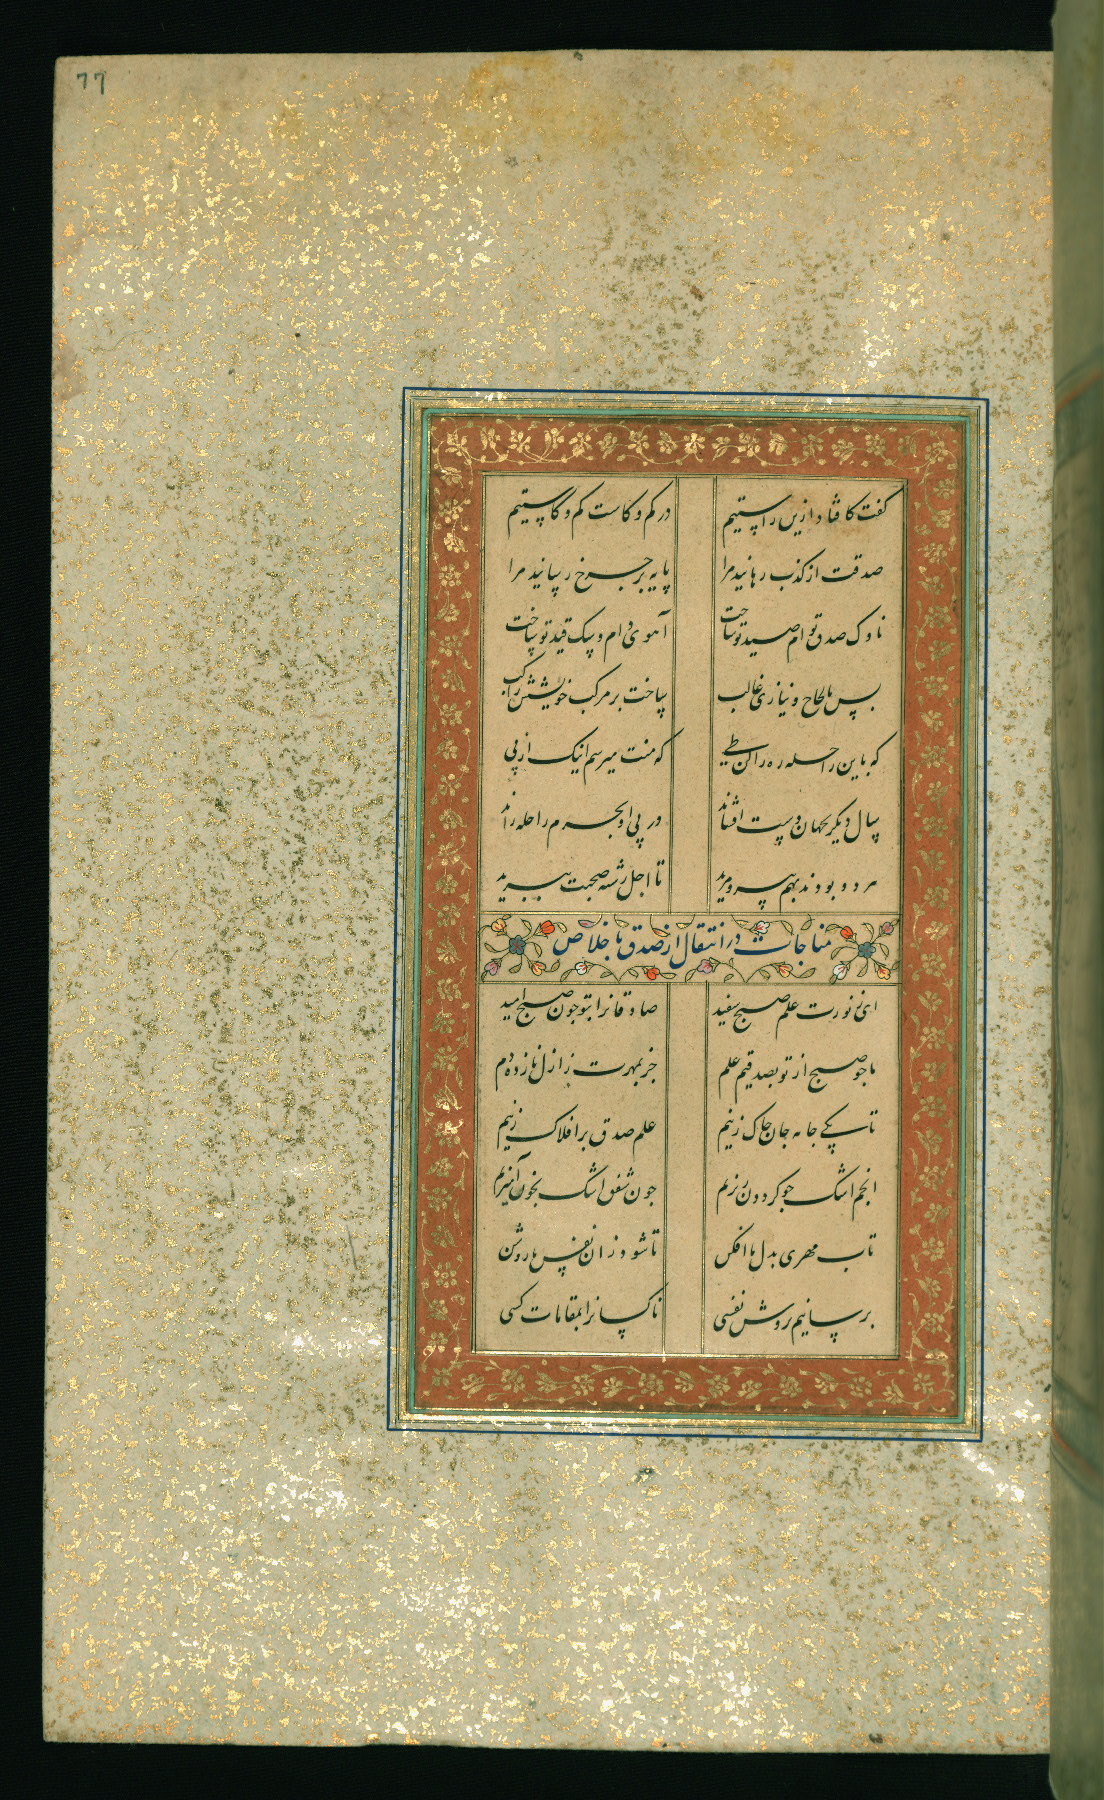 77
گفت کافتاد ازین راستیم
در کم و کاست کم و کاستیم
صدقت از کذب رهانید مرا
پایه بر چرخ رسانید مرا
ناوک صدق توام صید تو ساخت
آهوی دام و سگ قید تو ساخت
پس بالحاح و نیازی غالب
ساخت بر مرکب خویشش راکب
که باین راحله ره را کن طی
که منت میرسم اینک از پی
سال دیگر بجهان دست افشاند
در پی او بحرم راحله راند
هر دو بودند بهم پیر و مرید
تا اجل رشته صحبت ببرید
مناجات در انتقال از صدق باخلاص
ای ز نورت علم صبح سفید
صادقانرا بتو چون صبح امید
ما چو صبح از تو بصدقیم علم
جز بمهرت ز ازل نازده دم
تا بکی جامه جان چاک زنیم
علم صدق بر افلاک زنیم
انجم اشک چو گردون ریزیم
چون شفق اشک بخون آمیزیم
تاب مهری بدل ما افکن
تا شود زان نفس ما روشن
برسانیم بروشن نفسی
ناکسانرا بمقامات کسی